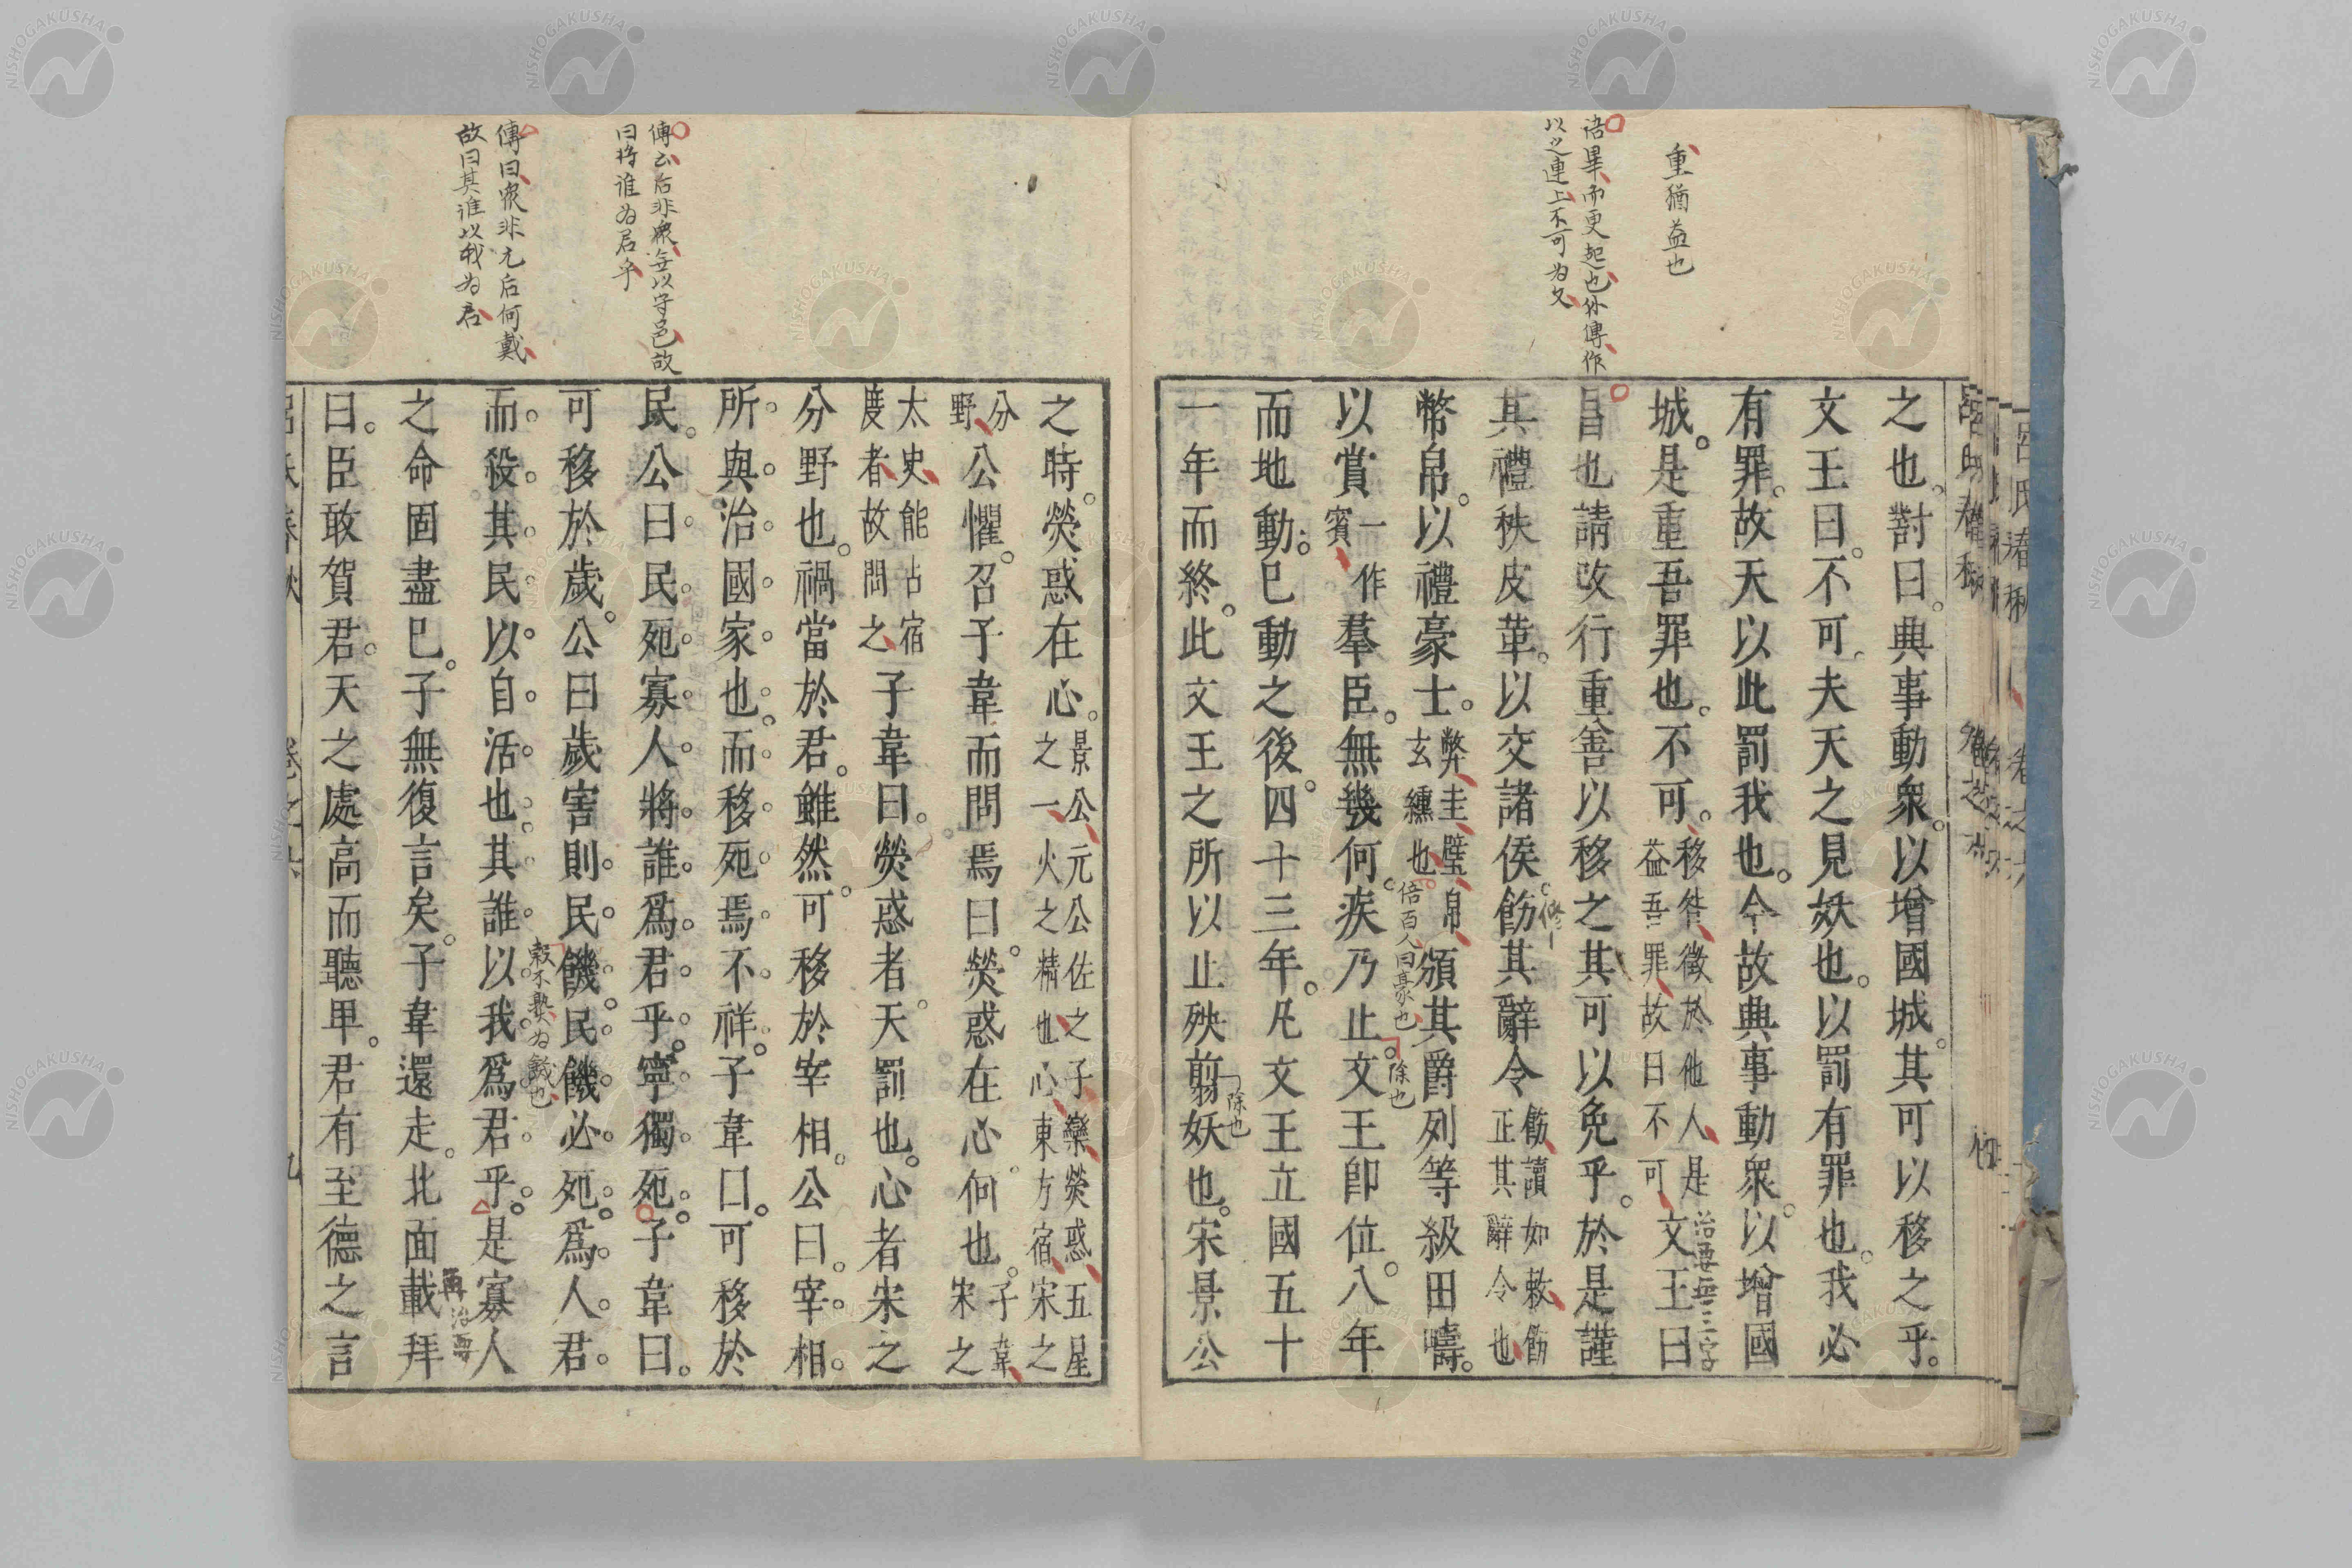 重猶益也
語畢而更起也外傳作
以之連上不可為文
之也對曰典事動衆以增國城其可以移之乎
文王曰不可夫天之見妖也以罰有罪也我必
有罪故天以此罰我也今故典事動衆以增國
城是重吾罪也不可移咎徵於他人是益吾罪故曰不可文王曰
治要無三字
昌也請改行重善以移之其可以免乎於是謹
其禮秩皮革以交諸侯飭其辭令飭讀如敕飭正其辭令也
幣帛以禮豪士弊圭璧帛玄纁也頒其爵列等級田疇
倍百人曰豪也
以賞一作賓羣臣無幾何疾乃止文王卽位八年
除也
而地動已動之後四十三年凡文王立國五十
一年而終此文王之所以止殃翦妖也宋景公
除也
傳云后非衆無以守邑故
曰將誰為君乎
傳曰衆非元后何戴
故曰其誰以我為君
之時熒惑在心景公元公佐之子欒熒惑五星之一火之精也心東方宿宋之
分野公懼召子韋而問焉曰熒惑在心何也子韋宋之
太史能占宿度者故問之子韋曰熒惑者天罰也心者宋之
分野也禍當於君雖然可移於宰相公曰宰相
所與治國家也而移死焉不祥子韋曰可移於
民公曰民死寡人將誰爲君乎寧獨死子韋曰
可移於歲公曰歲害則民饑民饑必死爲人君
穀不熟為饑也
而殺其民以自活也其誰以我爲君乎是寡人
之命固盡已子無復言矣子韋還走北面載拜
再治要
曰臣敢賀君天之處高而聽甲君有至德之言